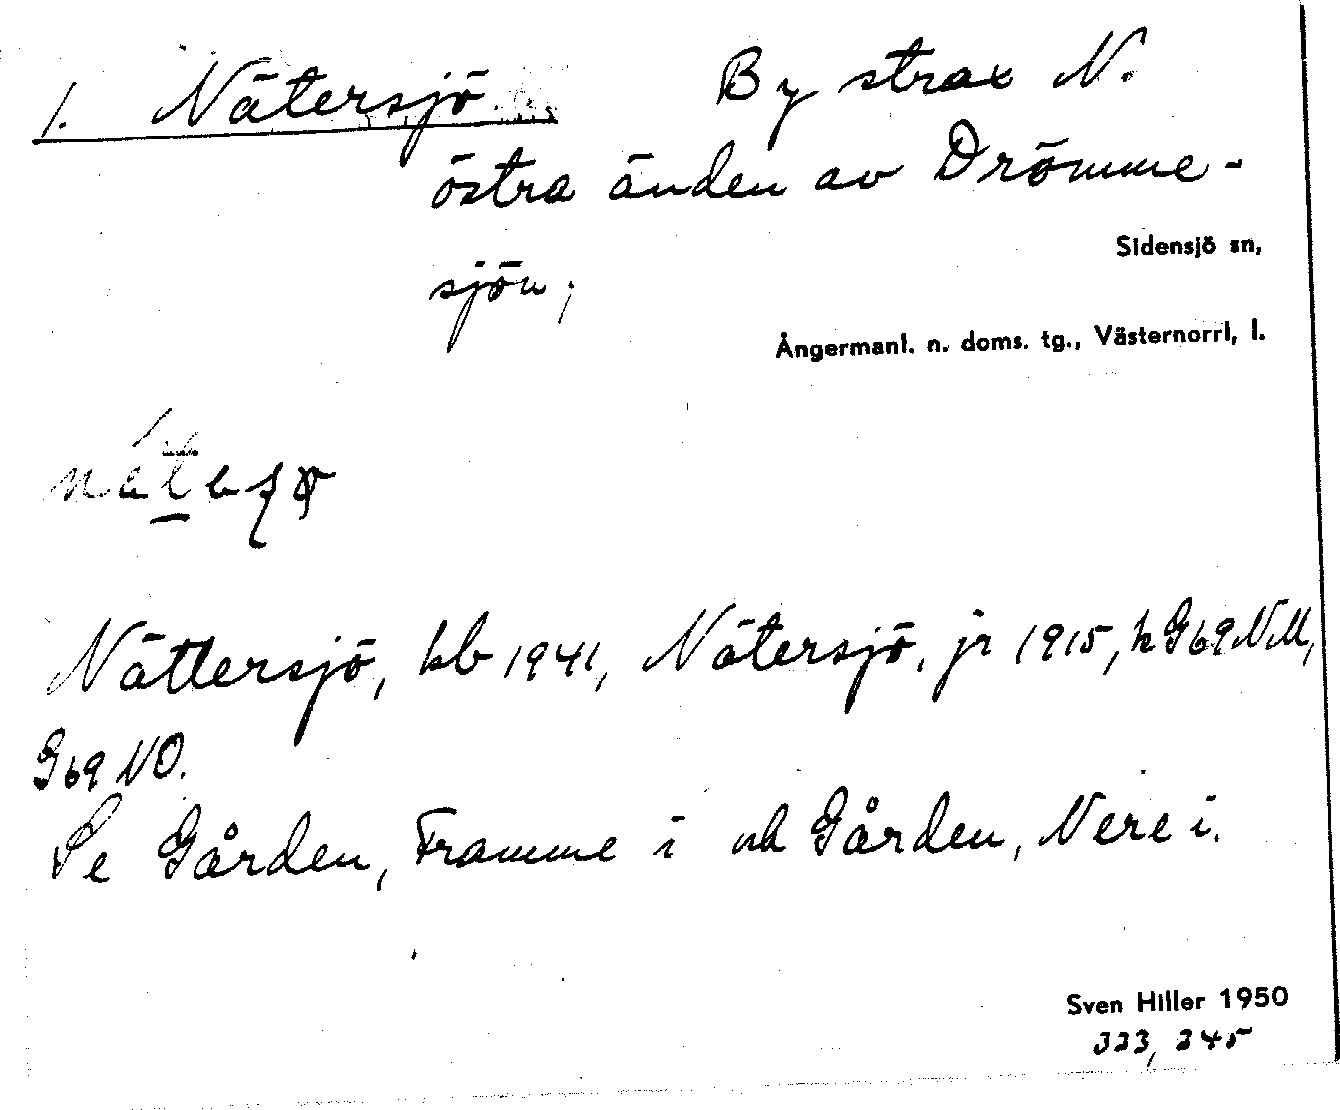 1. Nätersjö By strax N.
östra änden av Drömme-
sjön;
Sidensjö sn,
Ångermanl. n. doms. tg., Västernorrl, l.
Nättersjö, kb 1941, Nätersjö, jr 1915, k G69NM,
G69 NO.
Se Gården, Framme i och Gården, Nere i.
Sven Hiller 1950
323, 245